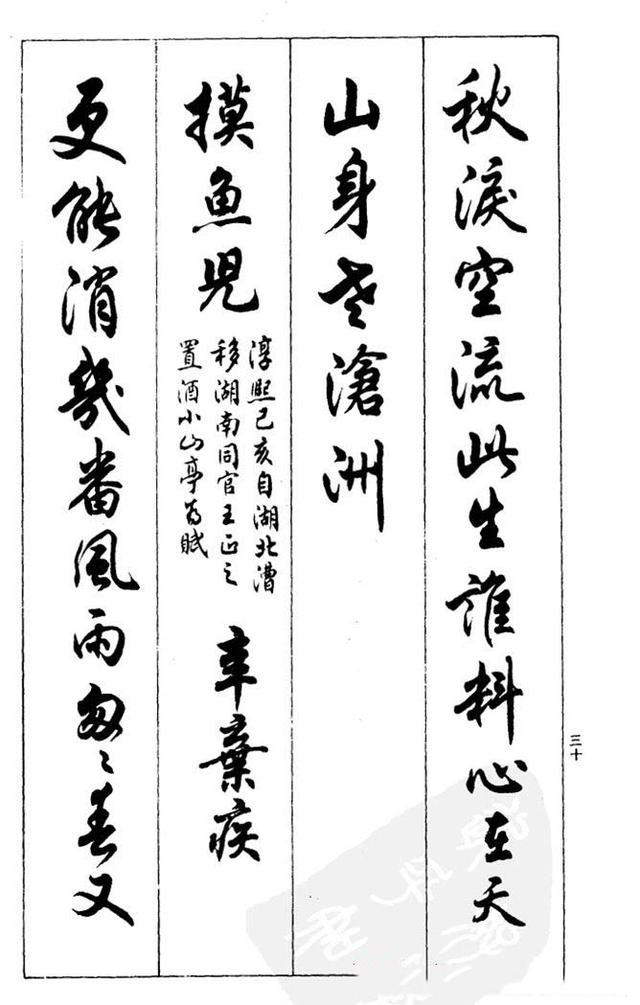 秋淚空流此生誰料心在天
山身老滄洲
摸魚兒
淳熙己亥自湖北漕
移湖南同官王正之
置酒小山亭為賦
辛棄疾
更能消幾番風雨匆〻春又
三十